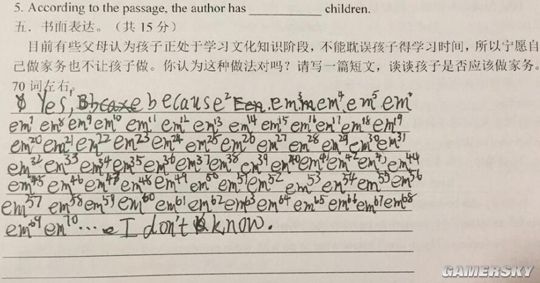 5. According to the passage, the author has __________ children.
五．书面表达。（共 15 分）
目前有些父母认为孩子正处于学习文化知识阶段，不能耽误孩子得学习时间，所以宁愿自
己做家务也不让孩子做。你认为这种做法对吗？请写一篇短文，谈谈孩子是否应该做家务。
70 词左右。
Yes, because² em³ em⁴ em⁵ em⁶
em⁷ em⁸ em⁹ em¹⁰ em¹¹ em¹² em¹³ em¹⁴ em¹⁵ em¹⁶ em¹⁷ em¹⁸ em¹⁹
em²⁰ em²¹ em²² em²³ em²⁴ em²⁵ em²⁶ em²⁷ em²⁸ em²⁹ em³⁰ em³¹
em³² em³³ em³⁴ em³⁵ em³⁶ em³⁷ em³⁸ em³⁹ em⁴⁰ em⁴¹ em⁴² em⁴³ em⁴⁴
em⁴⁵ em⁴⁶ em⁴⁷ em⁴⁸ em⁴⁹ em⁵⁰ em⁵¹ em⁵² em⁵³ em⁵⁴ em⁵⁵ em⁵⁶
em⁵⁷ em⁵⁸ em⁵⁹ em⁶⁰ em⁶¹ em⁶² em⁶³ em⁶⁴ em⁶⁵ em⁶⁶ em⁶⁷ em⁶⁸
em⁶⁹ em⁷⁰ ...... I don't know.
GAMERSKY